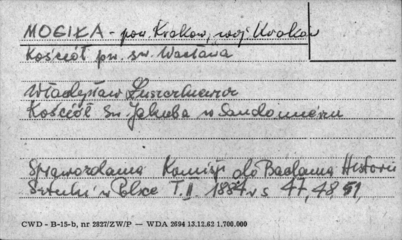 MOGIŁA - pow. Kraków, woj. Kraków
Kościół pw. św. Wacława
Władysław Łuszczkiewicz
Kościół Św. Jakuba w Sandomierzu
Sprawozdania Komisji do Badania Historii
Sztuki w Polsce T. II 1884 r. s 47, 48 51
CWD - B-15-b, nr 2827/ZW/P — WDA 2694 13.12.62 1.700.000